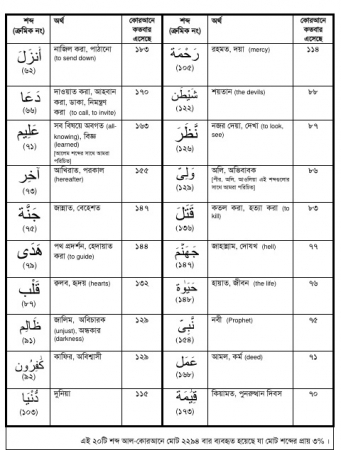 শব্দ (ক্রমিক নং) অর্থ কোরআনে কতবার এসেছে শব্দ (ক্রমিক নং) অর্থ কোরআনে কতবার এসেছে
أَنزَلَ (৬২) নাজিল করা, পাঠানো (to send down) ১৮৩ رَحْمَة (১০৫) রহমত, দয়া (mercy) ১১৪
دَعَا (৬৬) দাওয়াত করা, আহবান করা, ডাকা, নিমন্ত্রণ করা (to call, to invite) ১৭০ شَيْطٰن (১২২) শয়তান (the devils) ৮৮
عَلِيم (৭১) সব বিষয়ে অবগত (all-knowing), বিজ্ঞ (learned) [আলেম শব্দের সাথে আমরা পরিচিত] ১৬৩ نَظَرَ (১২৬) নজর দেয়া, দেখা (to look, see) ৮৭
آخِر (৭৩) আখিরাত, পরকাল (hereafter) ১৫৫ وَلِيّ (১২৯) অলি, অভিভাবক [পীর, অলি, আওলিয়া এই শব্দগুলোর সাথে আমরা পরিচিত] ৮৬
جَنَّة (৭৫) জান্নাত, বেহেশত ১৪৭ قَتَلَ (১৩৬) কতল করা, হত্যা করা (to kill) ৮৩
هَدَى (৭৯) পথ প্রদর্শন, হেদায়াত করা (to guide) ১৪৪ جَهَنَّم (১৪৭) জাহান্নাম, দোযখ (hell) ৭৭
قَلْب (৮৭) ক্বলব, হৃদয় (hearts) ১৩২ حَيٰوة (১৪৮) হায়াত, জীবন (the life) ৭৬
ظَالِم (৯১) জালিম, অবিচারক (unjust), অন্ধকার (darkness) ১২৯ نَبِيّ (১৫৪) নবী (Prophet) ৭৫
كٰفِرُون (৯২) কাফির, অবিশ্বাসী ১২৯ عَمَل (১৬৮) আমল, কর্ম (deed) ৭১
دُنْيَا (১০৩) দুনিয়া ১১৫ قِيٰمَة (১৭৩) কিয়ামত, পুনরুত্থান দিবস ৭০
এই ২০টি শব্দ আল-কোরআনে মোট ২২৯৪ বার ব্যবহৃত হয়েছে যা মোট শব্দের প্রায় ৩% ।